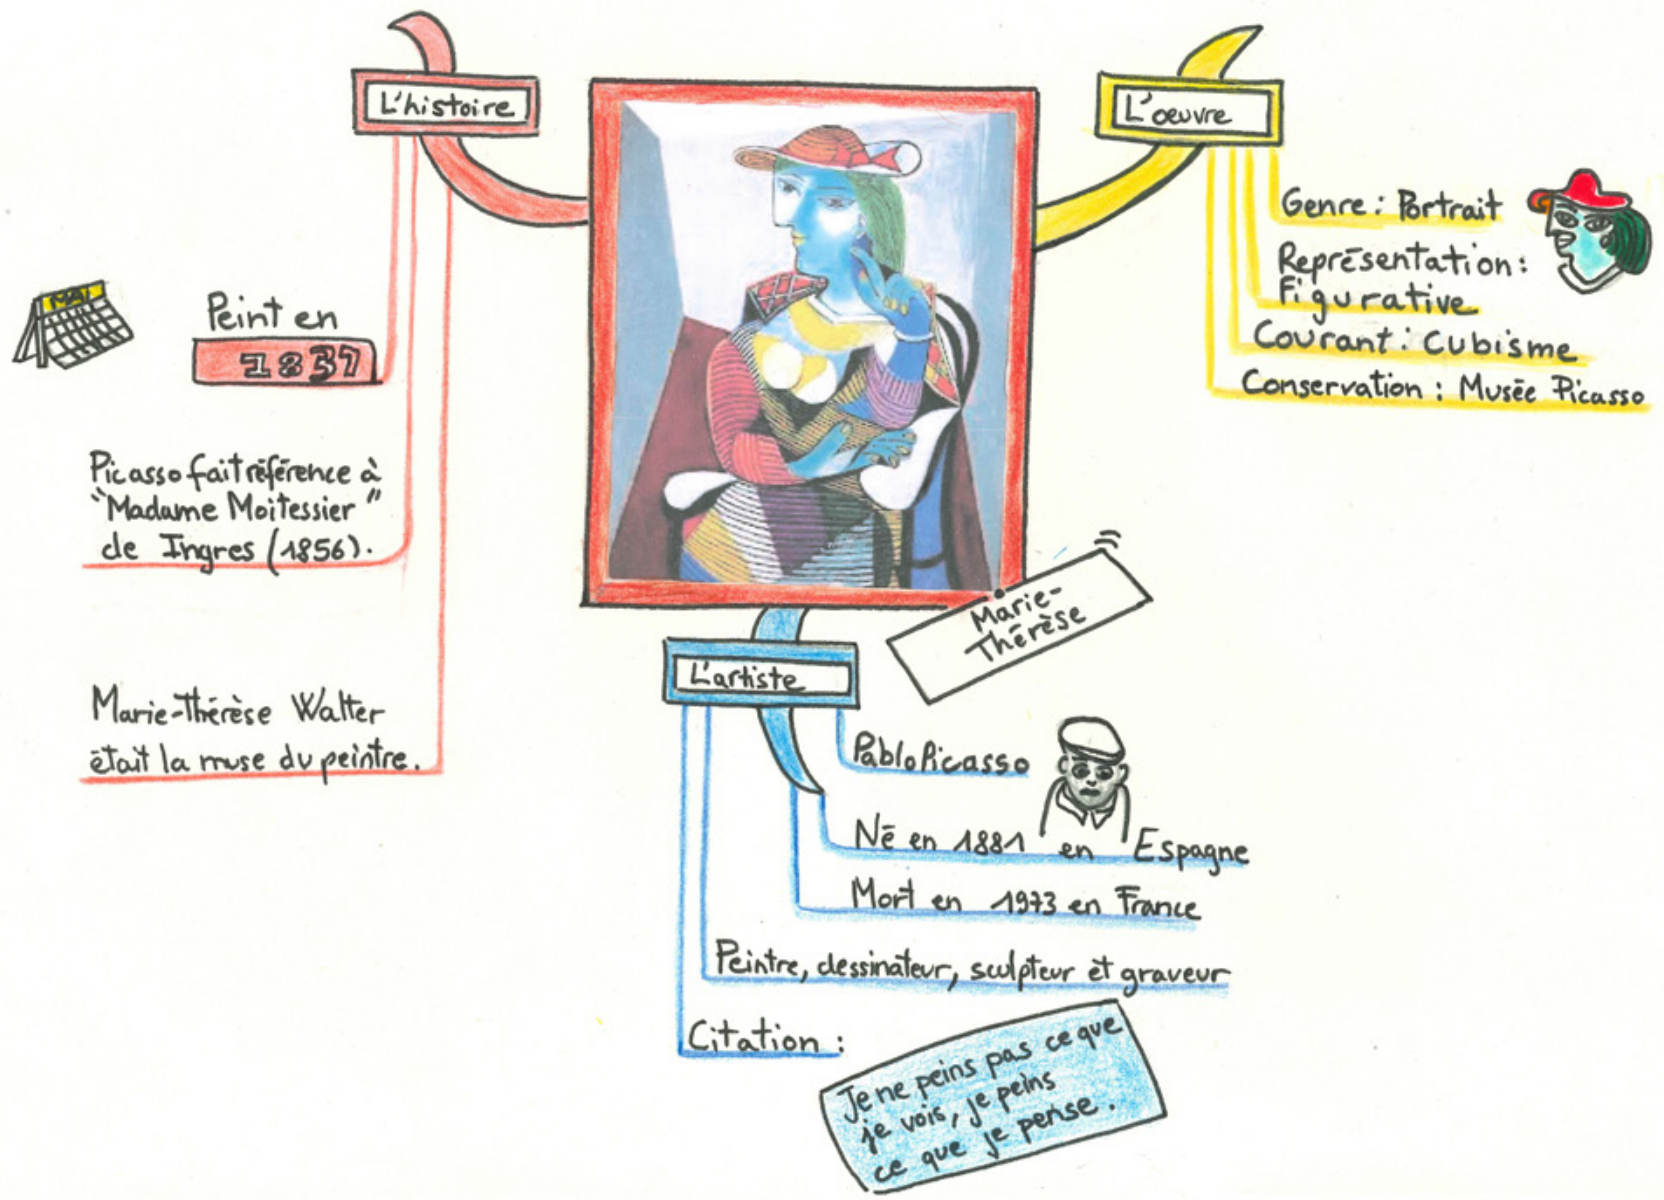 L'histoire
MAI
Peint en
1837
Picasso fait référence à
"Madame Moitessier"
de Ingres (1856).
Marie-Thérèse Walter
était la muse du peintre.
L'oeuvre
Genre : Portrait
Représentation :
Figurative
Courant : Cubisme
Conservation : Musée Picasso
Marie-
Thérèse
L'artiste
Pablo Picasso
Né en 1881 en Espagne
Mort en 1973 en France
Peintre, dessinateur, sculpteur et graveur
Citation :
Je ne peins pas ce que
je vois, je peins
ce que je pense.